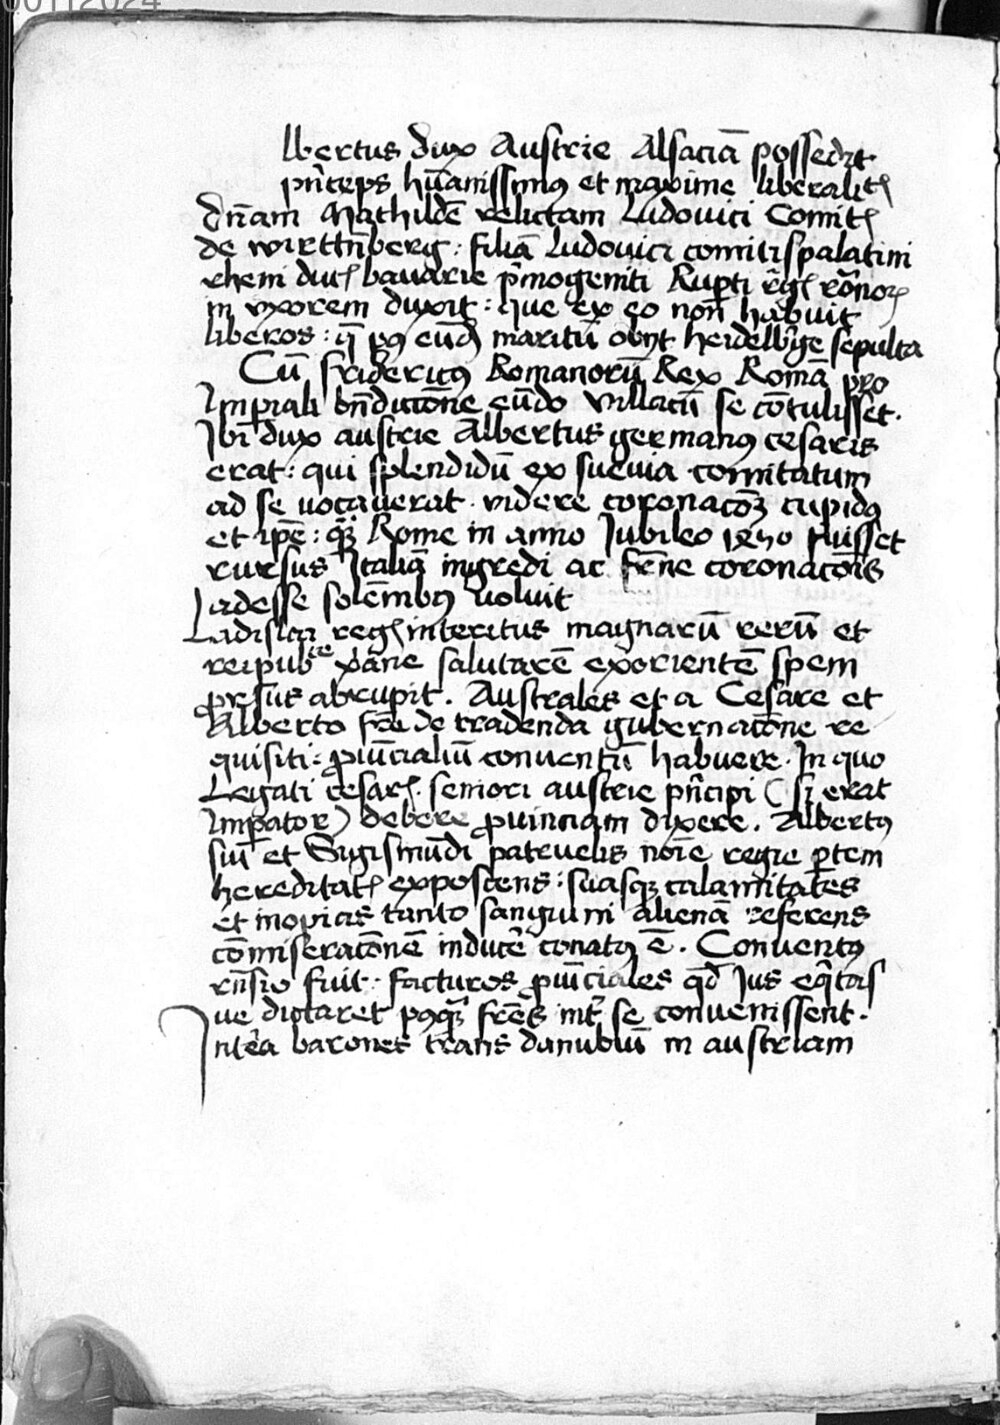 00112024
lbertus dux Austrie Alsaciā possedit
pn̄ceps hūanissimꝯ et maxime liberalitꝭ
dn̄am Mathildē relictam Ludovici Comitꝭ
de wirttn̄berg : filiā Ludovici comitis palatini
rheni ducꝭ bavarie p̄mogeniti Rup̄ti r̄gꝭ rōnoꝝ
in vxorem duxit : que ex eo non habuit
liberos : q̄ pꝯ eūdꝫ maritū obyt heidelb̄ge sepulta
Cū fridericꝯ Romanorū Rex Romā pro
Imp̄iali bn̄dictōne eūdo villacū se cōtulisset .
Ibi dux austrie Albertus germanꝯ cesaris
erat : qui splendidū ex suevia comitatum
ad se uocaverat . videre coronacōꝫ cupidꝯ
et ip̄e : qꝫ Rome in anno Jubileo 1450 fuisset
rursus Italiā ingredi ac fr̄ne coronacōis
adesse solēmbꝯ uoluit
Ladislai regꝭ interitus magnarū rerū et
reipub^ce xp̄āne salutarē exorientē spem
ꝓrsus abrupit . Australes et a Cesare et
Alberto fr̄e de tradenda gubernacōne re
quisiti : ꝓuīcialiū conuentū habuere . In quo
Legati cesarꝭ . seniori austrie pn̄cipi ( is erat
Imp̄ator ) debere ꝓuinciam dixere . Albertꝯ
suī et Sigismūdi patruelis noīe regie ꝑtem
hereditatꝭ exposcens : suasqꝫ calamitates
et inopias tanto sanguini alienā referens
cōmiseracōnē inducē conatꝯ ē . Conventꝯ
rn̄sio fuit : facturos ꝓuīciales qd̄ Jus eq̄tas
ue dictaret pꝯqꝫ fr̄es int̄ se convenissent .
Int̄ea barones trans danubiū in austriam